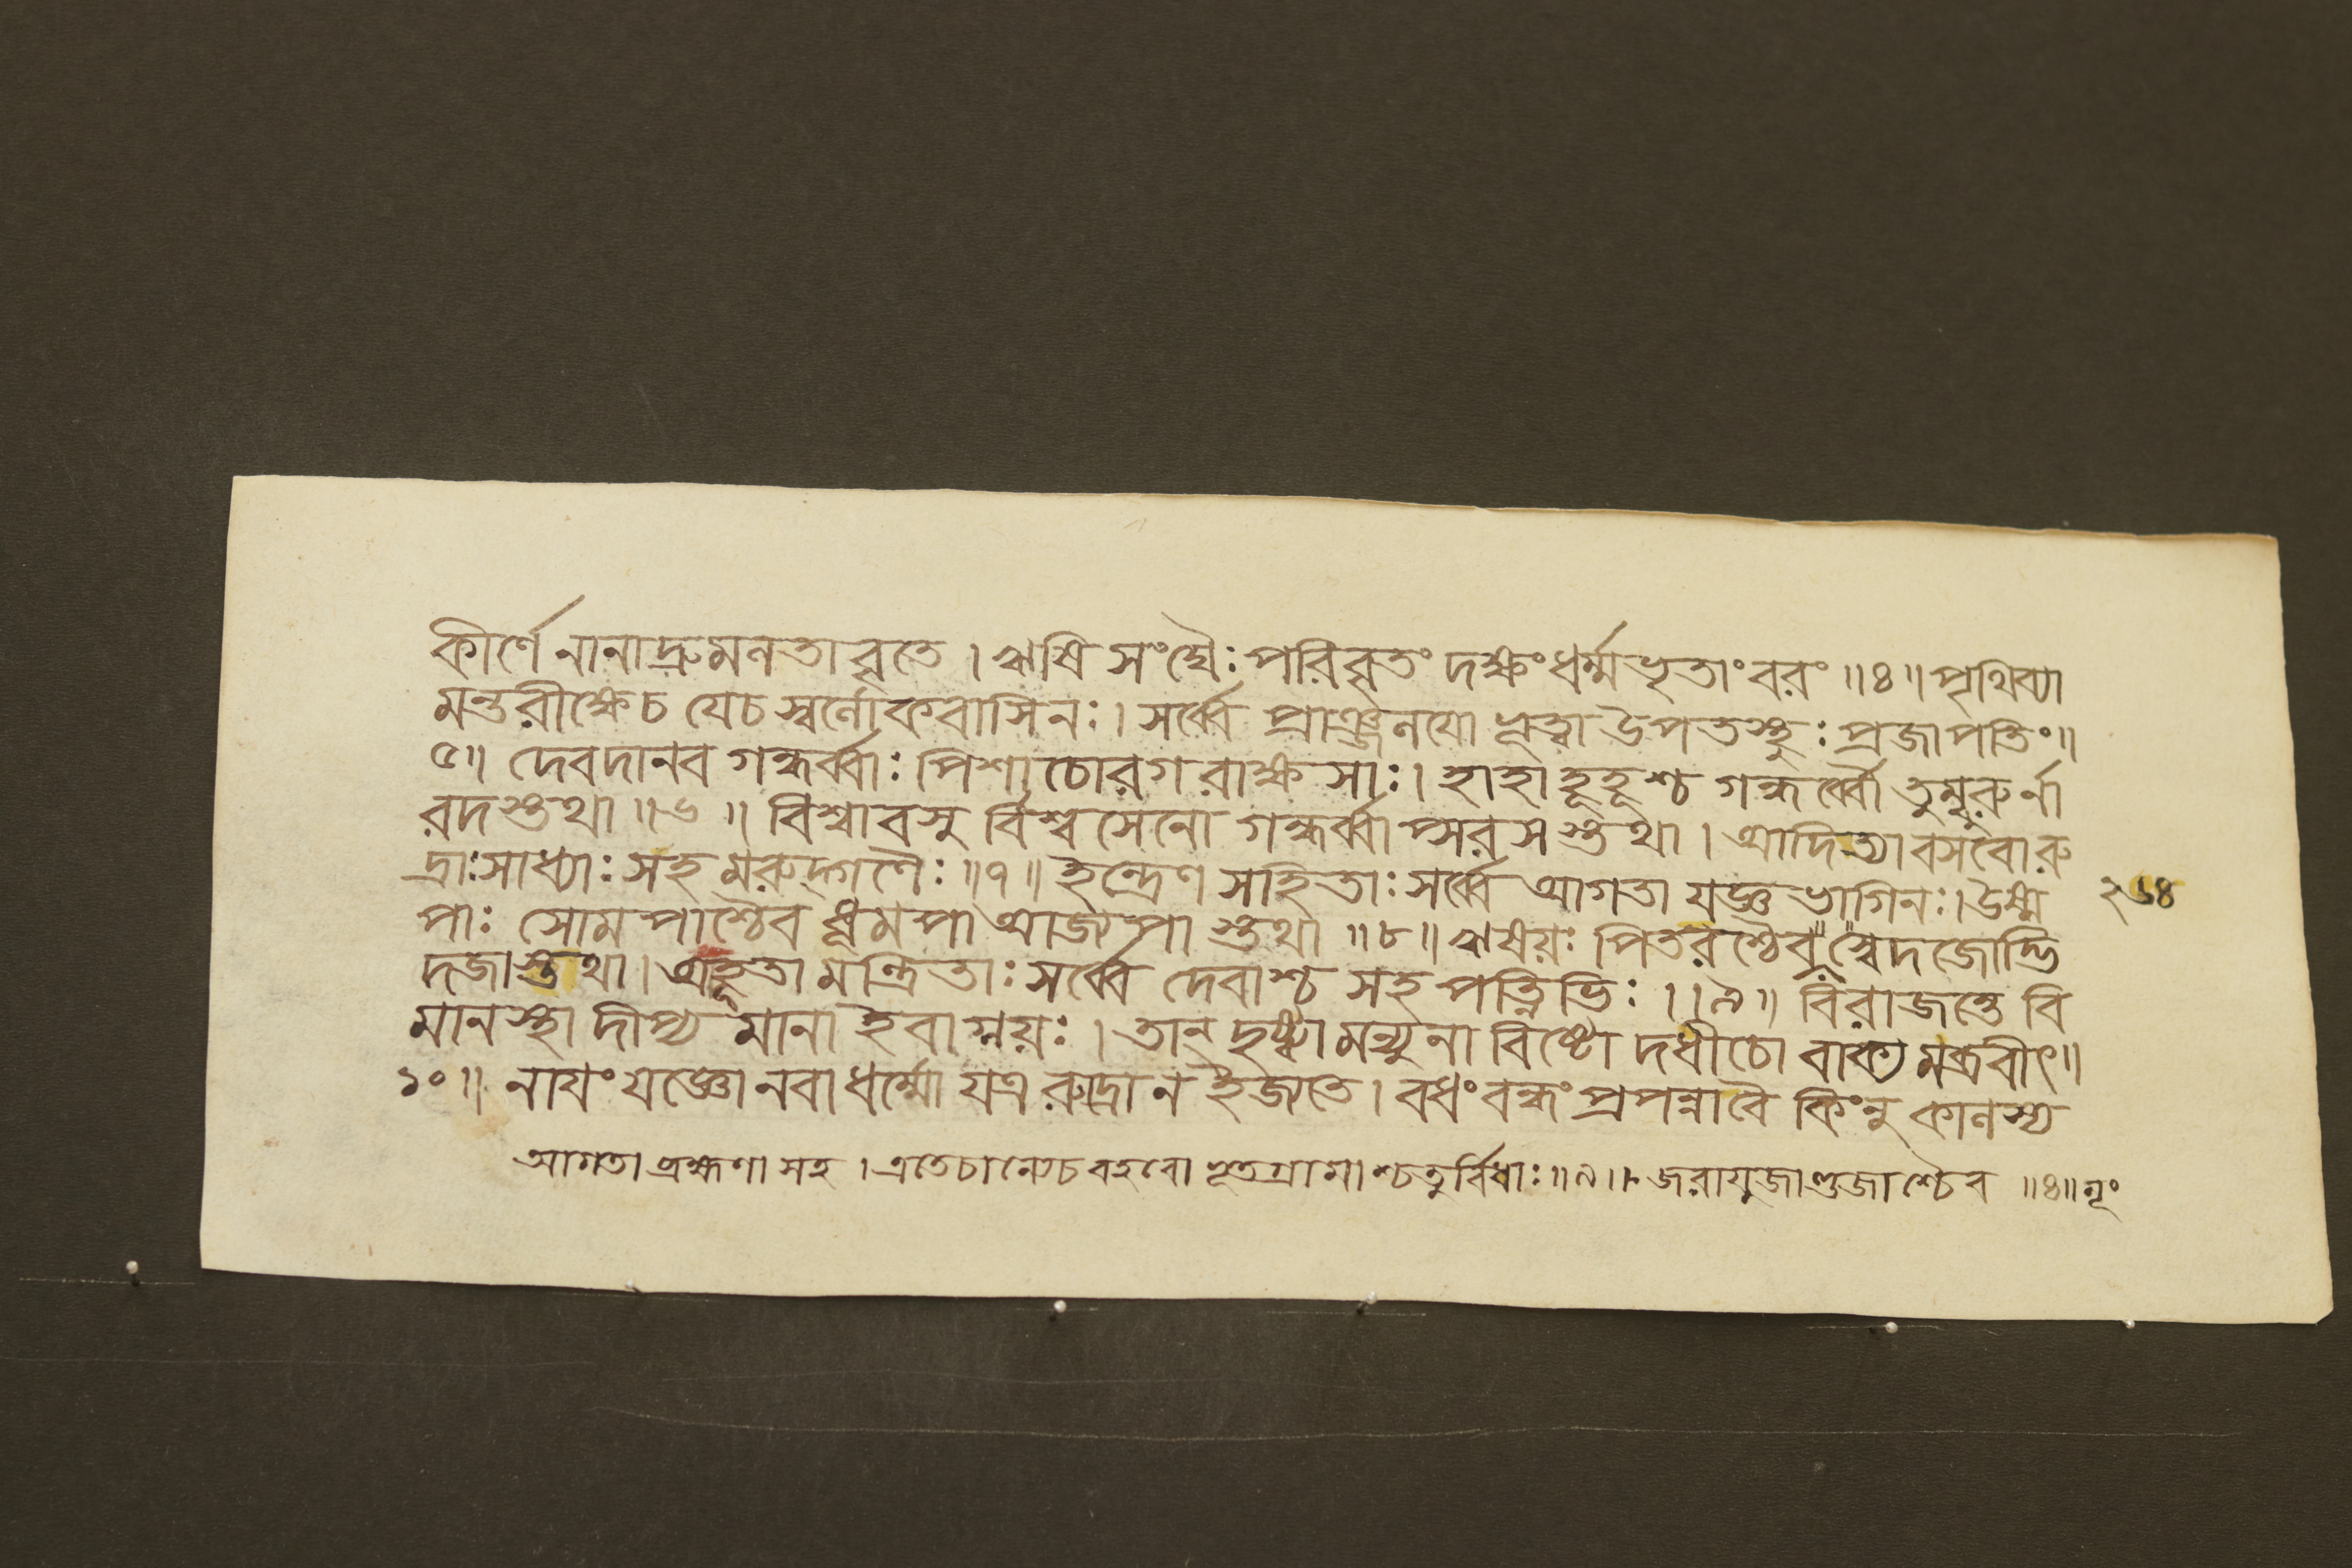 কীর্ণে নানাদ্রুমলতাবৃতে । ঋষি সংঘৈঃ পরিবৃতং দক্ষং ধর্ম্মভৃতাং বরং ॥ ৪ ॥ পৃথিব্যা
মন্তরীক্ষেচ যেচ স্বর্লোকবাসিনঃ । সর্ব্বে প্রাঞ্জলয়ো ভূত্বা উপতস্থুঃ প্রজাপতিং ॥
৫ ॥ দেবদানব গন্ধর্ব্বাঃ পিশাচোরগ রাক্ষসাঃ । হাহা হূহূশ্চ গন্ধর্ব্বৌ তুম্বুরুর্না
রদস্তথা ॥ ৬ ॥ বিশ্বাবসু র্বিশ্বসেনো গন্ধর্ব্বাপ্সরসস্তথা । আদিত্যাবসবোরু
দ্রাঃ সাধ্যাঃ সহ মরুদ্গণৈঃ ॥ ৭ ॥ ইন্দ্রেণ সহিতাঃ সর্ব্বে আগতা যজ্ঞভাগিনঃ । উষ্ম
২৬৪
পাঃ সোমপাশ্চৈব ধূমপা আজ্যপা স্তথা ॥ ৮ ॥ ঋষয়ঃ পিতরশ্চৈব স্বেদজোদ্ভি
দজাস্তথা । আহূতা মন্ত্রিতাঃ সর্ব্বে দেবাশ্চ সহ পত্নিভিঃ ॥ ৯ ॥ বিরাজন্তে বি
মানস্থা দীপ্য মানা ইবাগ্নয়ঃ । তান্ দৃষ্ট্বা মন্যুনা বিষ্টো দধীচো বাক্য মব্রবীৎ ॥
১০ ॥ নাযং যজ্ঞো নবা ধর্ম্মো যত্র রুদ্রো ন ইজ্যতে । বধং বন্ধং প্রপন্না বৈ কিংনু কালস্য
আগতা ব্রহ্মণা সহ । এতেচান্যেচ বহবো ভূতগ্রামাশ্চতুর্বিধাঃ ॥ ৯ ॥ জরায়ুজাণ্ডজাশ্চৈব ॥ ৪ ॥